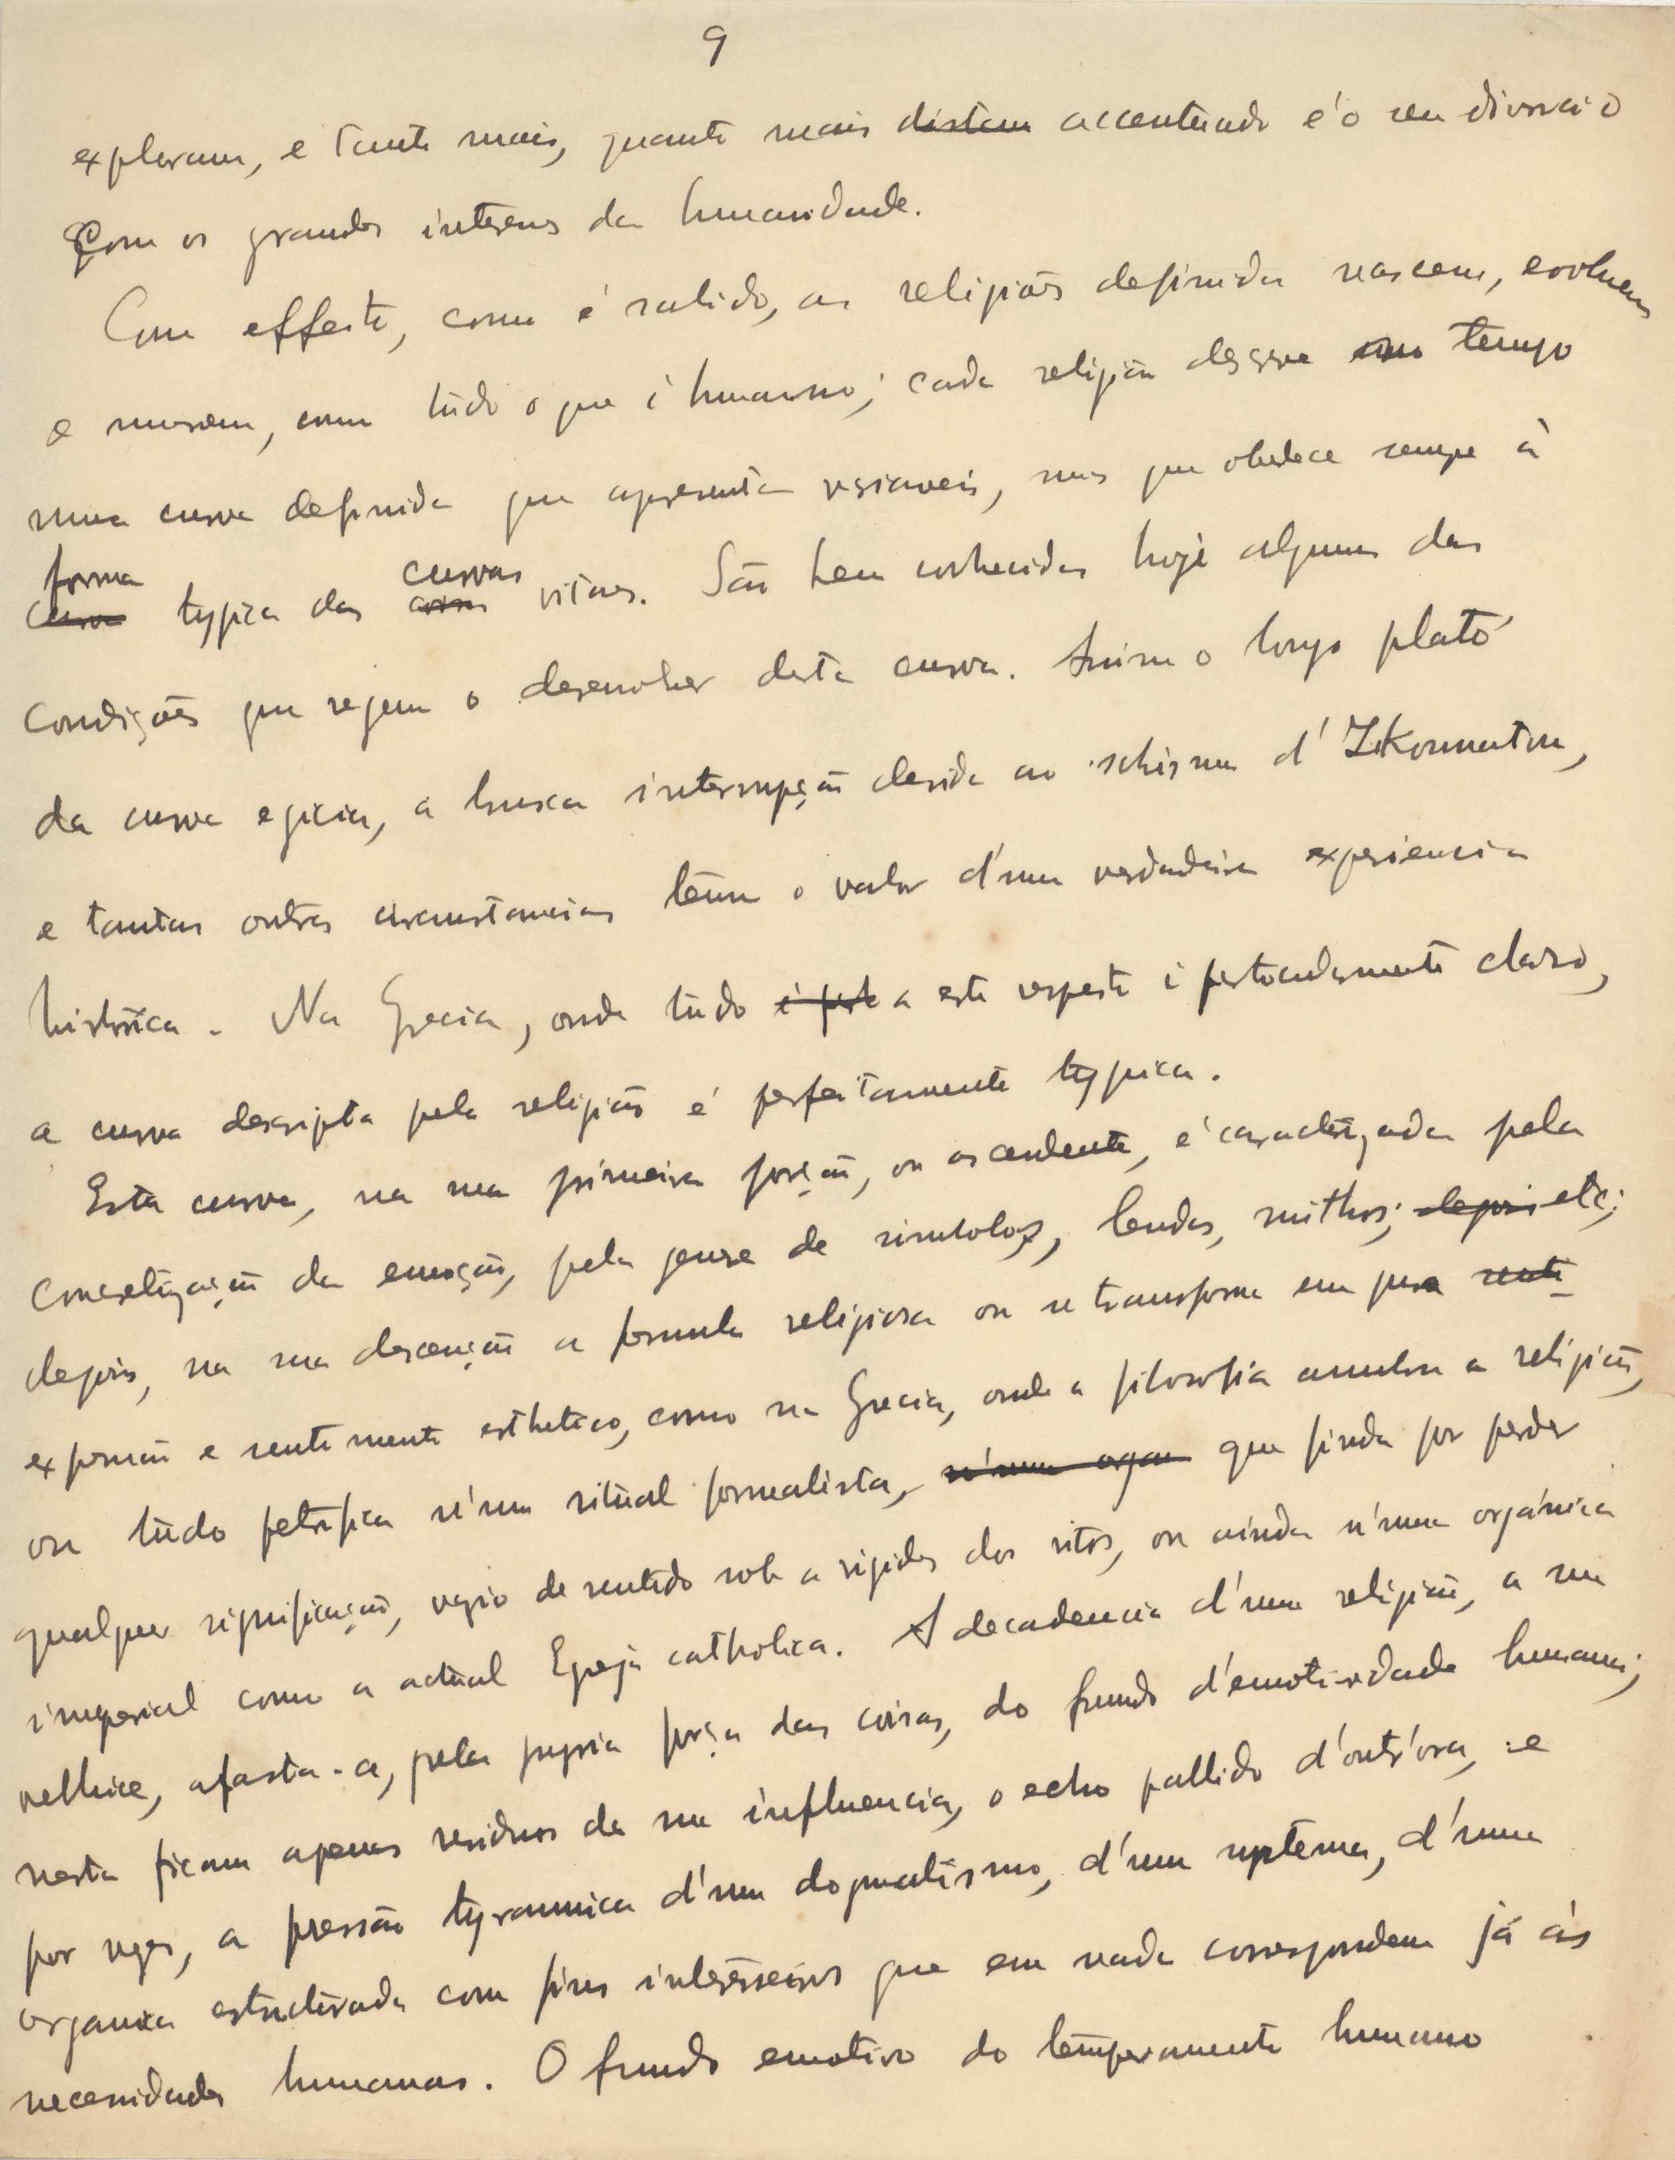 9
exploram, e tanto mais, quanto mais distam accentuado é o seu divorcio
Com os grandes interesses da humanidade.
Com effeito, como é sabido, as religiões definidas nascem, evoluem
e morrem, como tudo o que é humano; cada religião descreve no tempo
uma curva definida que apresenta variaveis, mas que obedece sempre á
forma curvas
curva typica das vitaes. São bem conhecidas hoje algumas das
condições que regem o desenvolver desta curva. Assim o longo plató
da curva egicia, a brusca interrupção devida ao schisma d'Ikounaton,
e tantas outras circunstancias teem o valor d'uma verdadeira experiencia
historica. Na Grecia, onde tudo é part a este respeito é particularmente claro,
a curva descripta pela religião é perfeitamente typica.
Esta curva, na sua primeira porção, ou ascendente, é caracterizada pela
concretização da emoção, pela genese de simbolos, lendas, mithos; depois etc;
depois, na sua descenção a formula religiosa ou se transforma em pura senti
expressão e sentimento esthetico, como na Grecia, onde a filosofia annulou a religião,
ou tudo petrifica n'um ritual formalista, n'uma organ que finda por perder
qualquer significação, vazio de sentido sob a rigidez dos ritos, ou ainda n'uma orgánica
imperial como a actual Egreja catholica. A decadencia d'uma religião, a sua
velhice, afasta-a, pela propria força das coisas, do fundo d'emotividade humana;
nesta ficam apenas residuos da sua influencia, o echo pallido d'outr'ora, e
por vezes, a pressão tyrannica d'um dogmatismo, d'um systema, d'uma
organica estructurada com fins interesseiros que em nada correspondem já ás
necessidades humanas. O fundo emotivo do temperamento humano